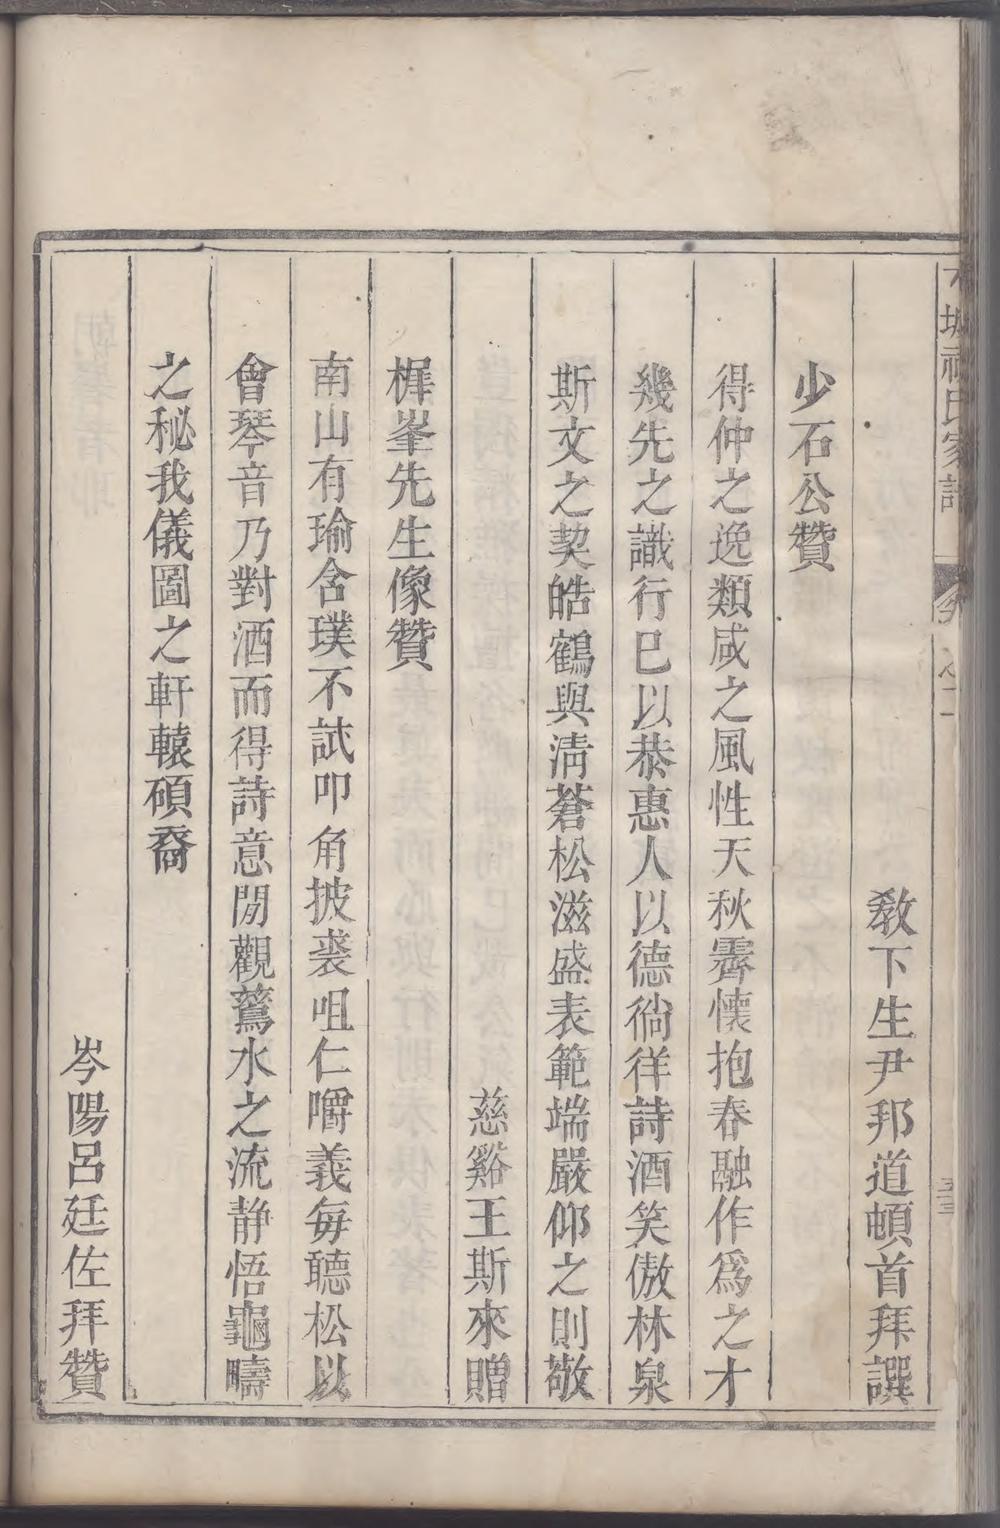 敎下生尹邦道頓首拜譔
少石公贊
得仲之逸類咸之風性天秋霽懷抱春融作爲之才
幾先之識行巳以恭惠人以德徜徉詩酒笑傲林泉
斯文之契皓鶴與淸蒼松滋盛表範端嚴仰之則敬
慈谿王斯來贈
樨峯先生像贊
南山有瑜含璞不試叩角披裘咀仁嚼義每聽松以
會琴音乃對酒而得詩意閒觀鶩水之流靜悟龜疇
之秘我儀圖之軒轅碩裔
岑陽呂廷佐拜贊